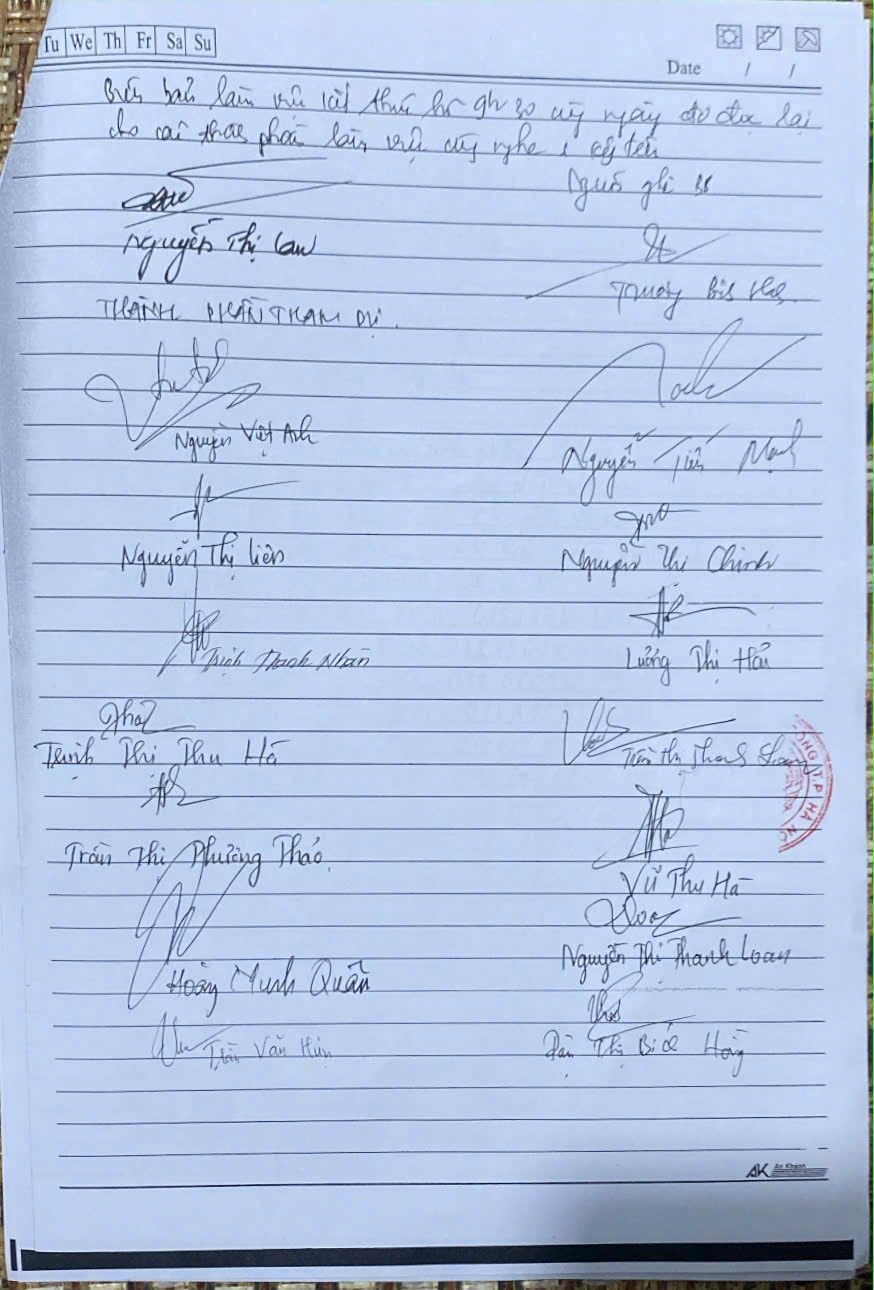 Tu We Th Fr Sa Su
Date / /
Biên bản làm việc kết thúc hồi gh30 cùng ngày đã đọc lại
cho các thành phần làm việc cùng nghe & ký tên
Người ghi BB
Nguyễn Thị Lan
Trương
THÀNH PHẦN THAM DỰ.
Nguyễn Việt Anh
Nguyễn Tiến Mạnh
Nguyễn Thị Liên
Nguyễn Thị Chinh
Trịnh Thanh Nhàn
Lương Thị Hải
Trịnh Thị Thu Hà
Trần Thị Thanh
NG T.P HÀ NỘ
Trần Thị Phương Thảo
Vũ Thu Hà
Nguyễn Thị Thanh Loan
Hoàng Minh Quân
Trần Văn
Thị Bích Hồng
AK An Khanh